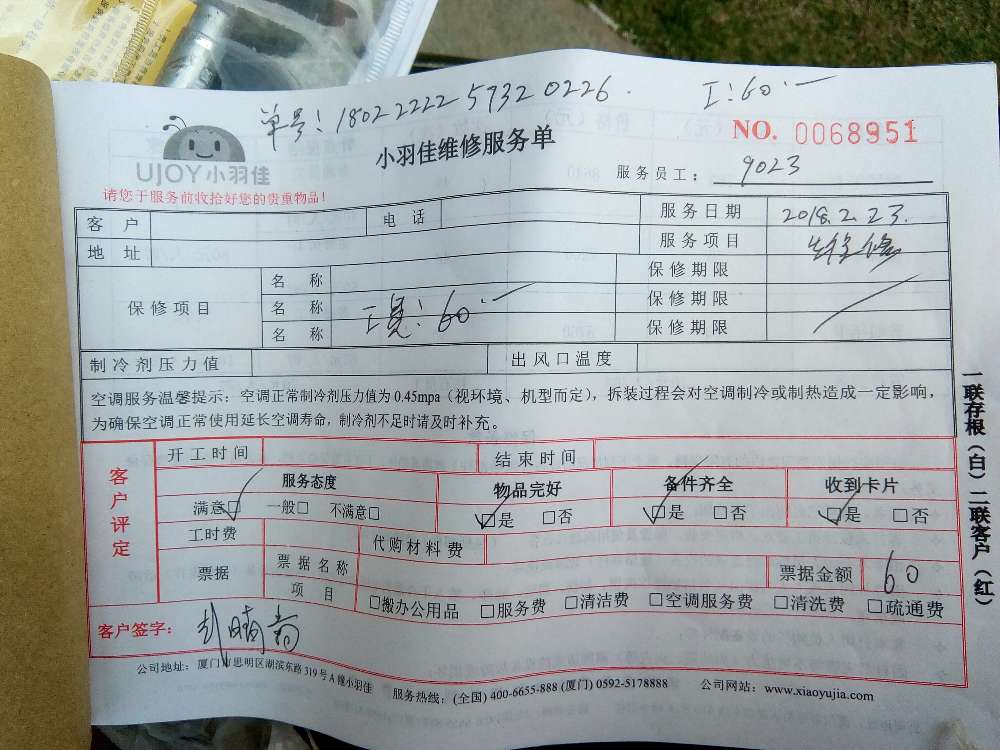 单号：1802 2222 5732 0226. I：60.一
NO. 0068951
UJOY小羽佳
小羽佳维修服务单
服务员工： 9023
请您于服务前收拾好您的贵重物品！
客户 电话 服务日期 2018.2.23.
地址 服务项目 维修
保修项目
名称 保修期限
名称 保修期限
名称 60.一 保修期限
制冷剂压力值 出风口温度
空调服务温馨提示：空调正常制冷剂压力值为0.45mpa（视环境、机型而定），拆装过程会对空调制冷或制热造成一定影响，
为确保空调正常使用延长空调寿命，制冷剂不足时请及时补充。
一联存根（白）二联客户（红）
客户评定
开工时间 结束时间
服务态度 物品完好 备件齐全 收到卡片
满意□ 一般□ 不满意□ □是 □否 □是 □否 □是 □否
工时费 代购材料费
票据 票据名称 票据金额 60
项目 □搬办公用品 □服务费 □清洁费 □空调服务费 □清洗费 □疏通费
客户签字：
公司地址：厦门市思明区湖滨东路319号A幢小羽佳 服务热线：(全国) 400-6655-888 (厦门) 0592-5178888 公司网站：www.xiaoyujia.com